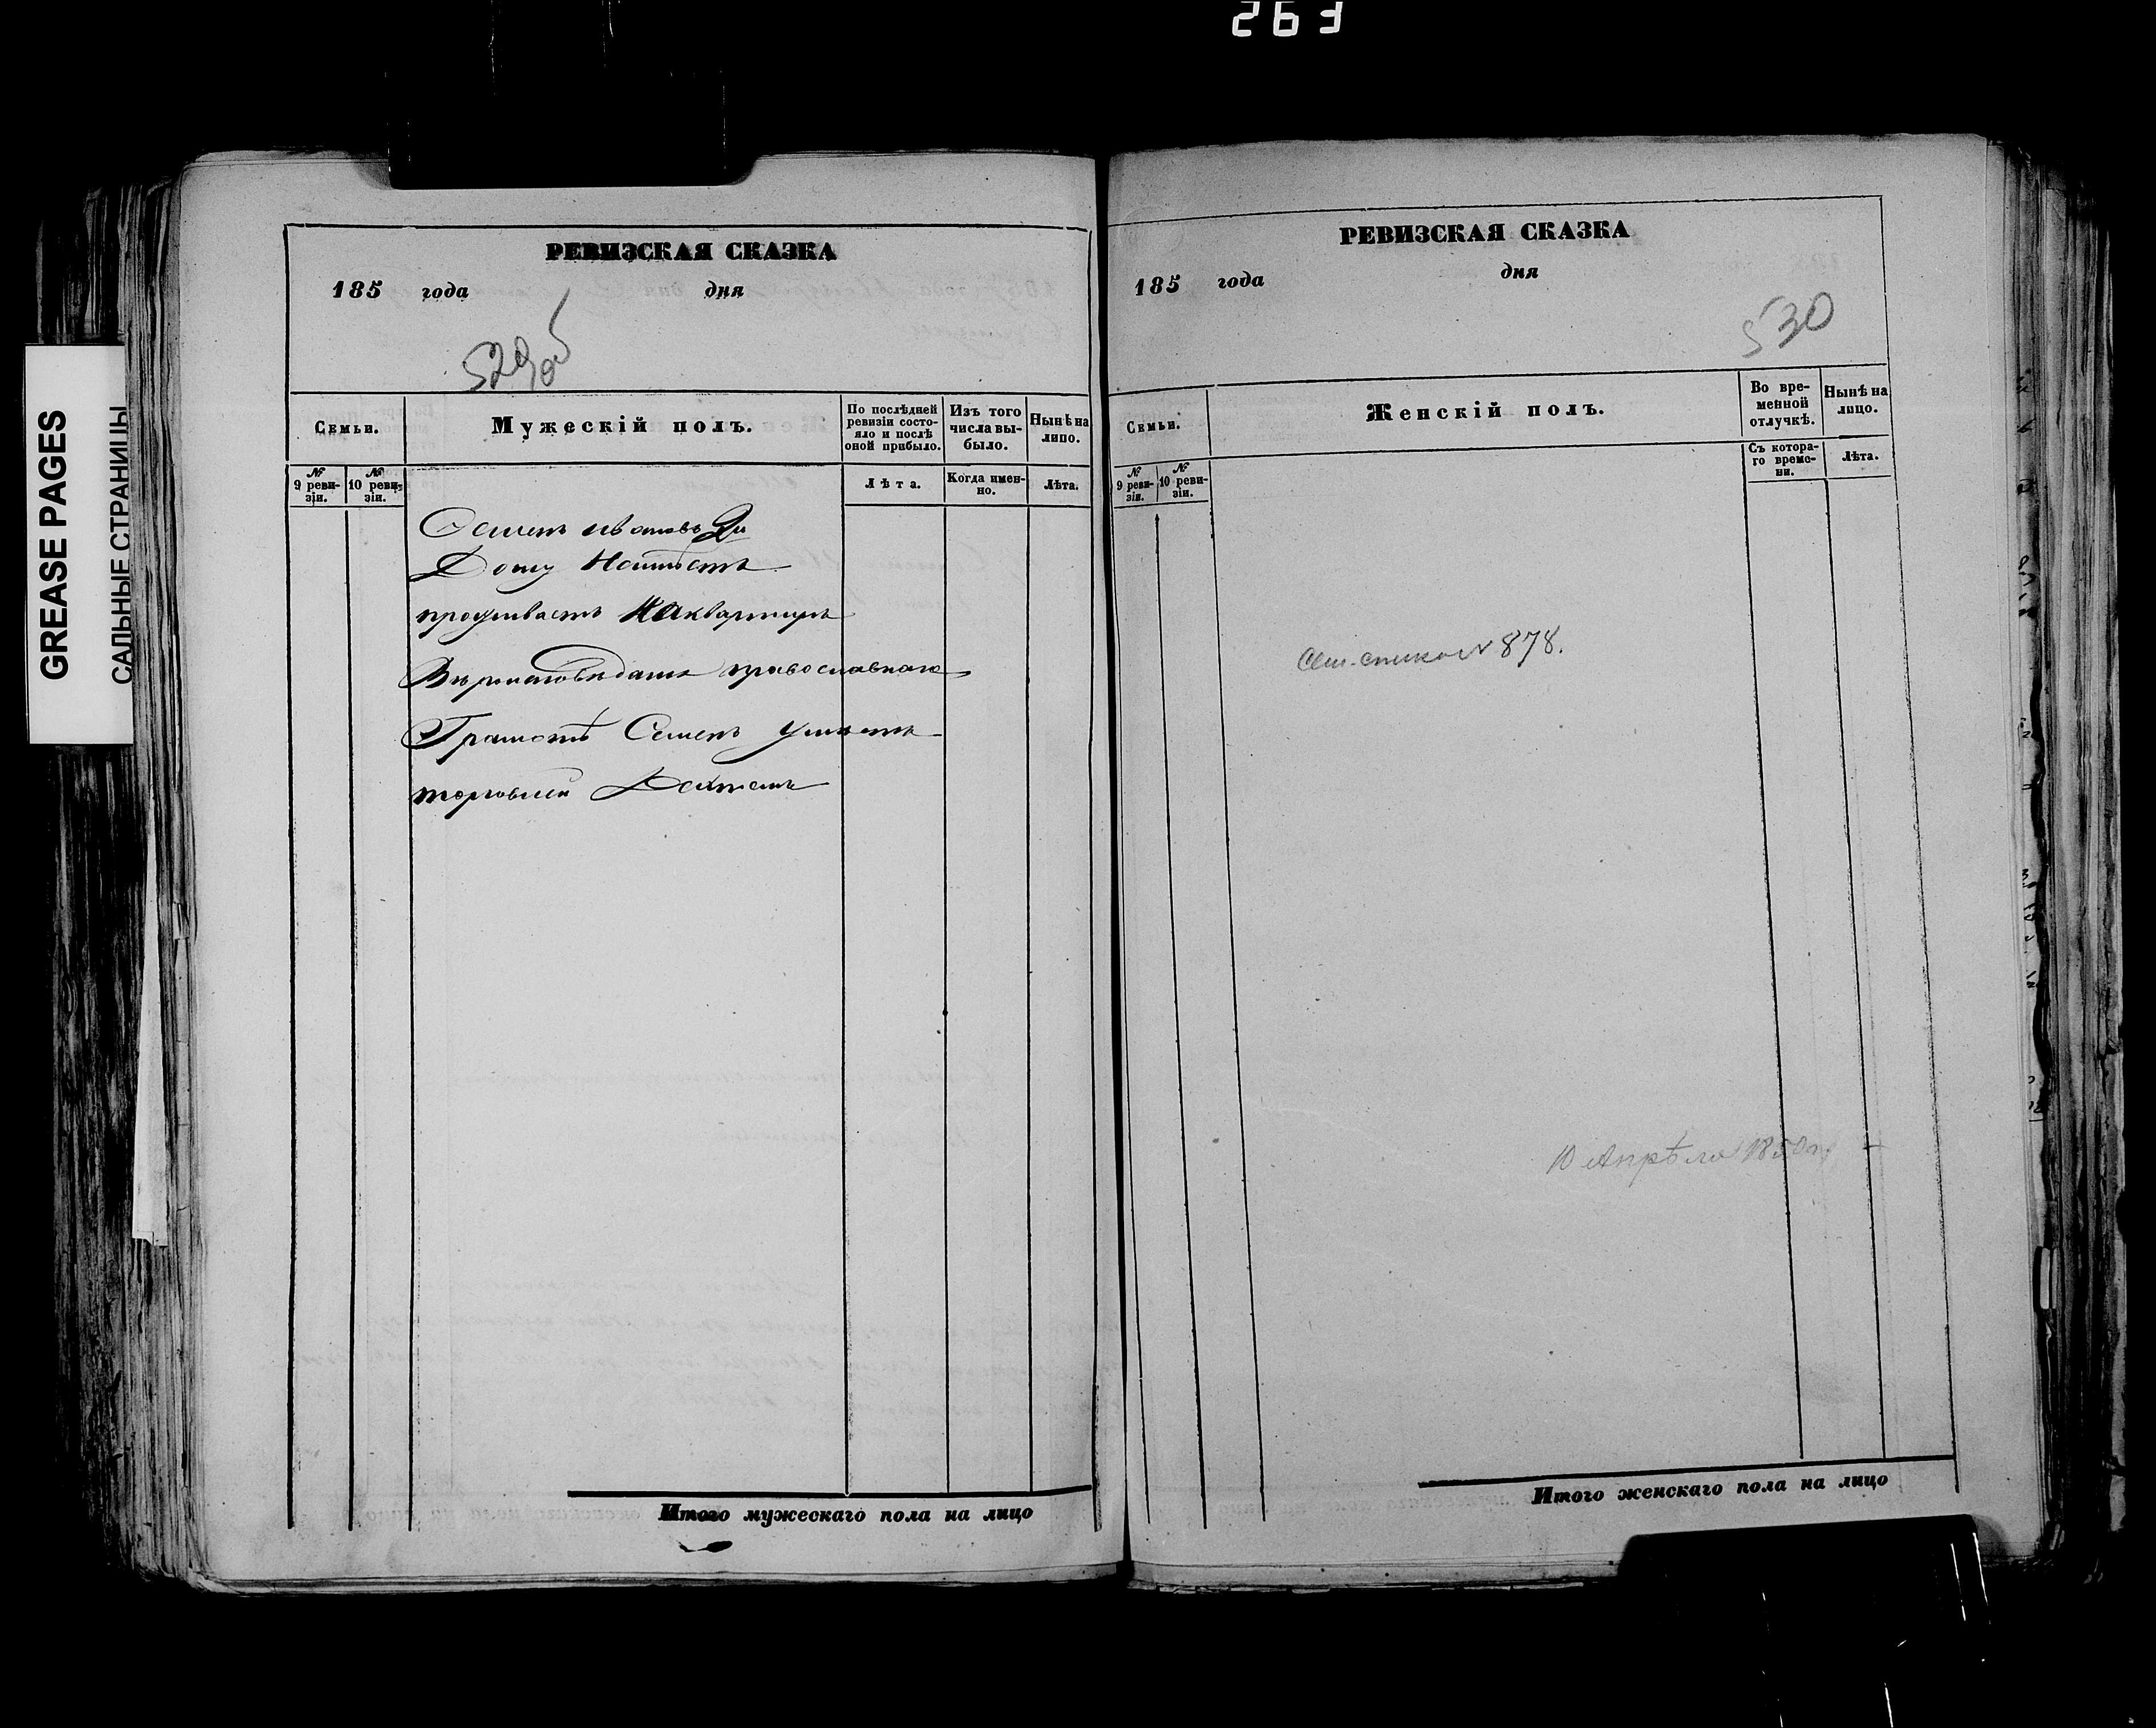 263
GREASE PAGES
САЛЬНЫЕ СТРАНИЦЫ
РЕВИЗСКАЯ СКАЗКА
185 года дня
529об
Семьи.
Мужескій полъ.
По послѣдней ревизіи состо-
яло и послѣ
оной прибыло.
Изъ того
числа вы-
было.
Нынѣ на
лицо.
№
9 реви-
зіи.
№
10 реви-
зіи.
Лѣта.
Когда имен-
но.
Лѣта.
Семенъ Ивановъ
Дому Неимѣетъ
проживаетъ Наквартирѣ
Вѣроисповѣданія православнаго
Грамотѣ Семенъ Умѣетъ
торговлей
Итого мужескаго пола на лицо
РЕВИЗСКАЯ СКАЗКА
185 года дня
530
Семьи.
Женскій полъ.
Во вре-
менной
отлучкѣ.
Нынѣ на
лицо.
№
9 реви-
зіи.
№
10 реви-
зіи.
Съ котора-
го време-
ни.
Лѣта.
№ 878.
10 Апрѣля 1850 г.
Итого женскаго пола на лицо